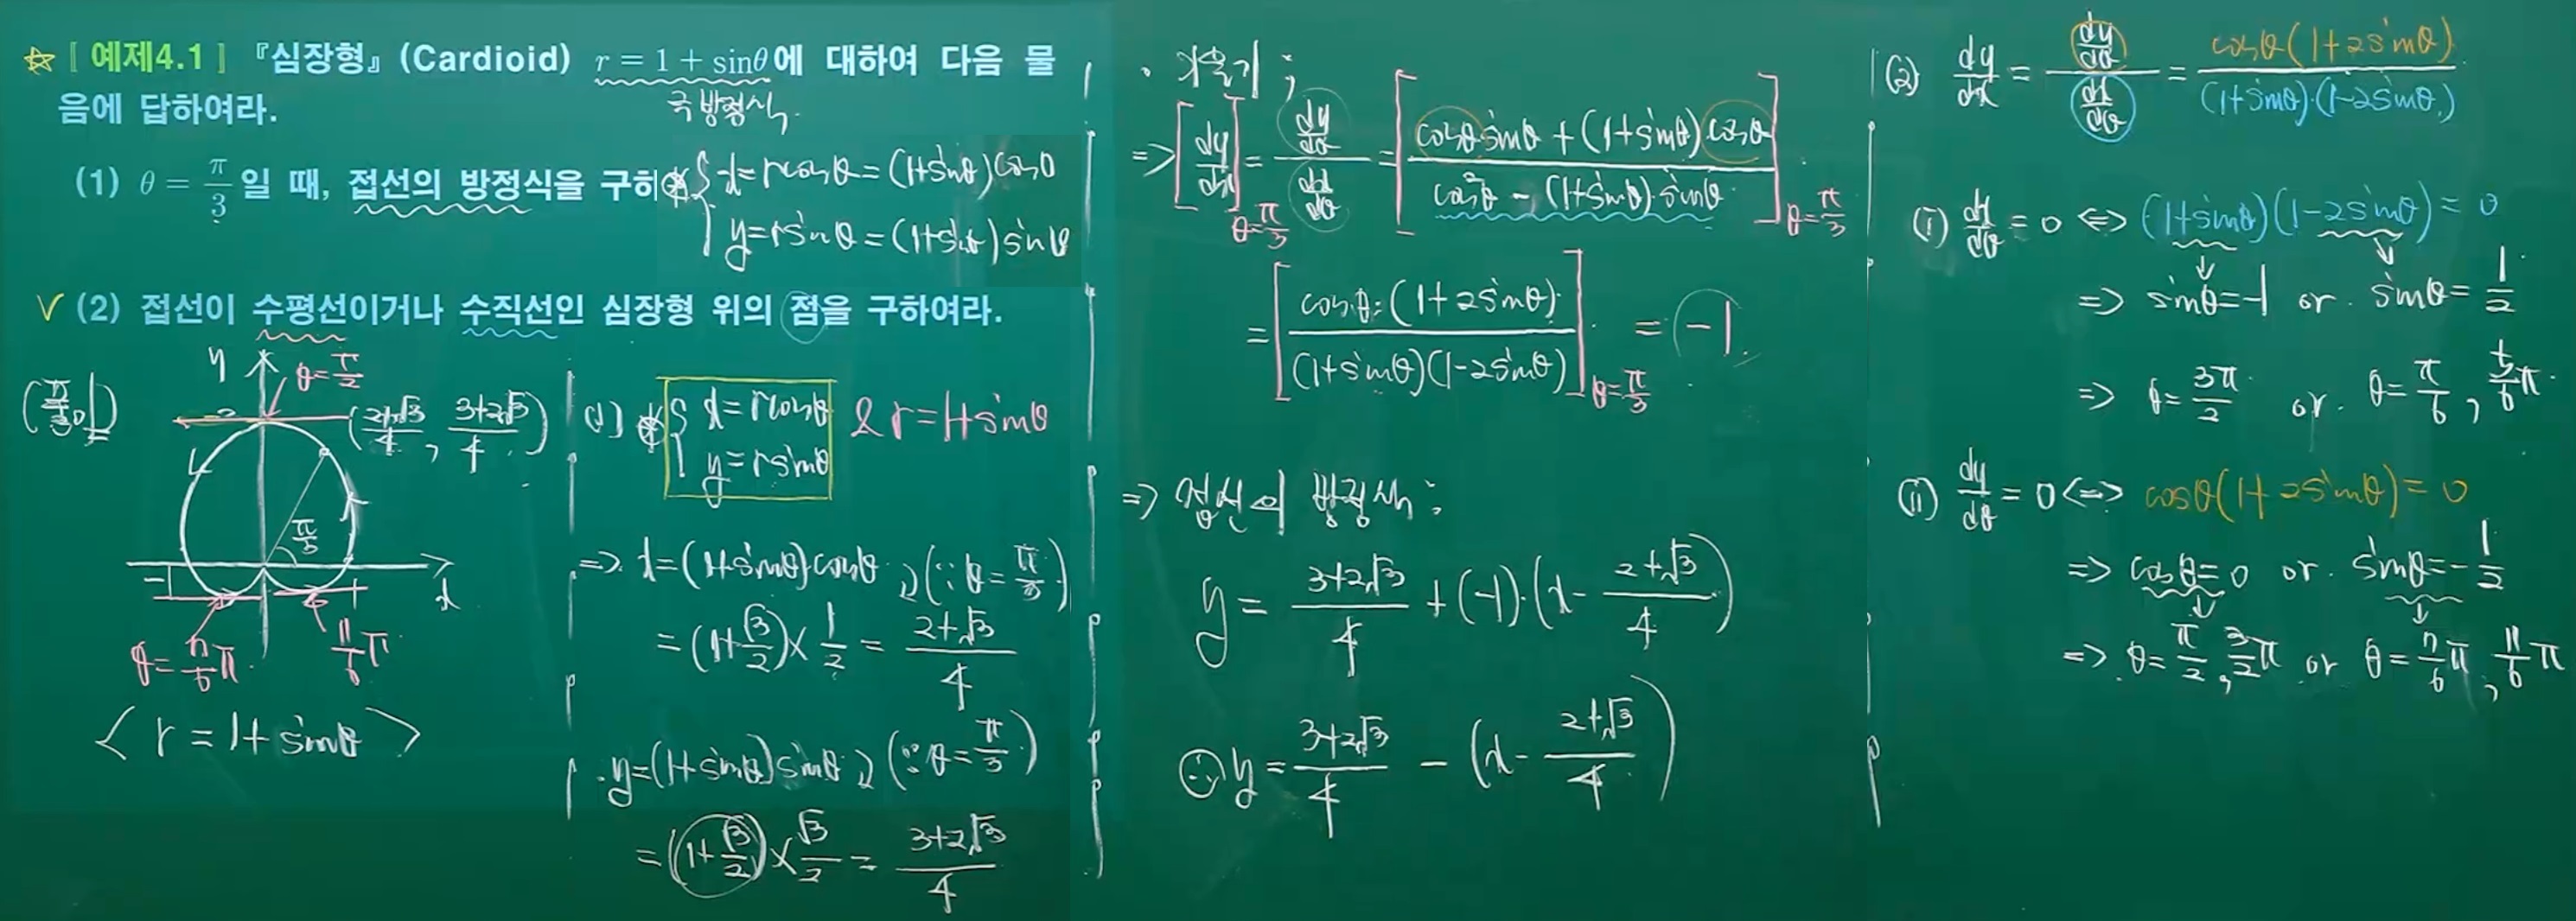 ☆ [ 예제4.1 ] 『심장형』 (Cardioid) r = 1 + sinθ에 대하여 다음 물
음에 답하여라.
극방정식
(1) θ = π/3 일 때, 접선의 방정식을 구하
※ { x = rcosθ = (1+sinθ)cosθ
y = rsinθ = (1+sinθ)sinθ
√ (2) 접선이 수평선이거나 수직선인 심장형 위의 점을 구하여라.
y
θ = π/2
2
((2+√3)/4, (3+2√3)/4)
π/3
-1
1
x
θ = 7/6 π
11/6 π
< r = 1 + sinθ >
1) ※ { x = rcosθ
y = rsinθ
& r = 1+sinθ
=> x = (1+sinθ)cosθ, (∵ θ = π/3)
= (1+√3/2) × 1/2 = (2+√3)/4
· y = (1+sinθ)sinθ, (∵ θ = π/3)
= (1+√3/2) × √3/2 = (3+2√3)/4
· 기울기 ;
=> [dy/dx]θ=π/3 = (dy/dθ)/(dx/dθ) = [(cosθ sinθ + (1+sinθ)cosθ)/(cos²θ - (1+sinθ)·sinθ)]θ=π/3
= [(cosθ·(1+2sinθ))/((1+sinθ)(1-2sinθ))]θ=π/3 = -1
=> 접선의 방정식 :
y = (3+2√3)/4 + (-1)·(x - (2+√3)/4)
∴ y = (3+2√3)/4 - (x - (2+√3)/4)
(2) dy/dx = (dy/dθ)/(dx/dθ) = (cosθ(1+2sinθ))/((1+sinθ)·(1-2sinθ))
(i) dx/dθ = 0 <=> (1+sinθ)(1-2sinθ) = 0
=> sinθ = -1 or sinθ = 1/2
=> θ = 3π/2 or θ = π/6, 5/6 π
(ii) dy/dθ = 0 <=> cosθ(1+2sinθ) = 0
=> cosθ = 0 or sinθ = -1/2
=> θ = π/2, 3/2 π or θ = 7/6 π, 11/6 π